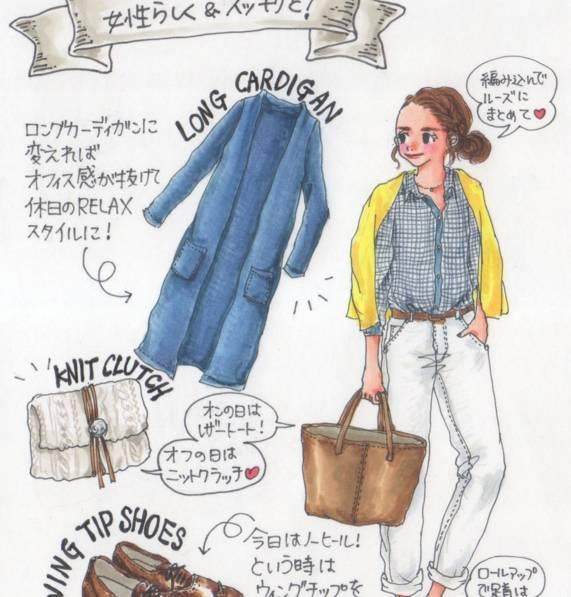 女性らしく&スッキリと!
LONG CARDIGAN
ロングカーディガンに
変えれば
オフィス感が抜けて
休日のRELAX
スタイルに!
編み込んで
ルーズに
まとめて
KNIT CLUTCH
オンの日は
レザートート!
オフの日は
ニットクラッチ
WING TIP SHOES
今日はノーヒール!
という時は
ウィングチップを
ロールアップ
で足首は